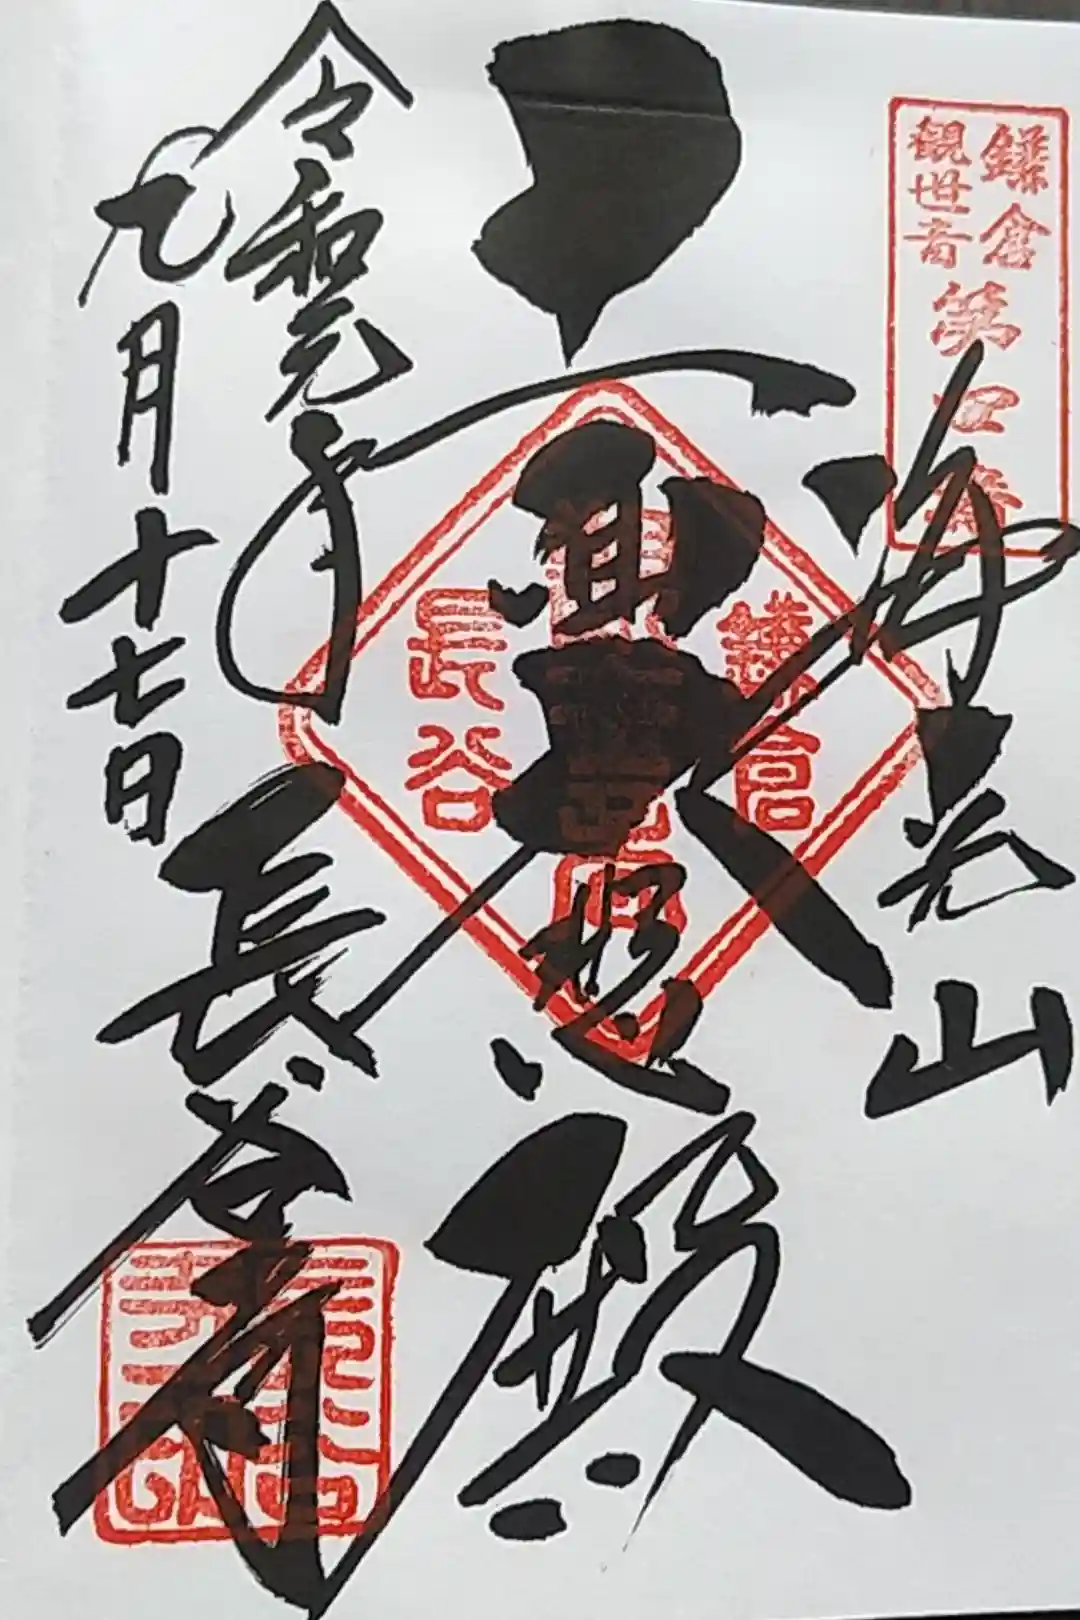 鎌倉
観世音
第四番
海光山
十一面大悲殿
鎌倉
長谷
令和元年
九月十七日
長谷寺